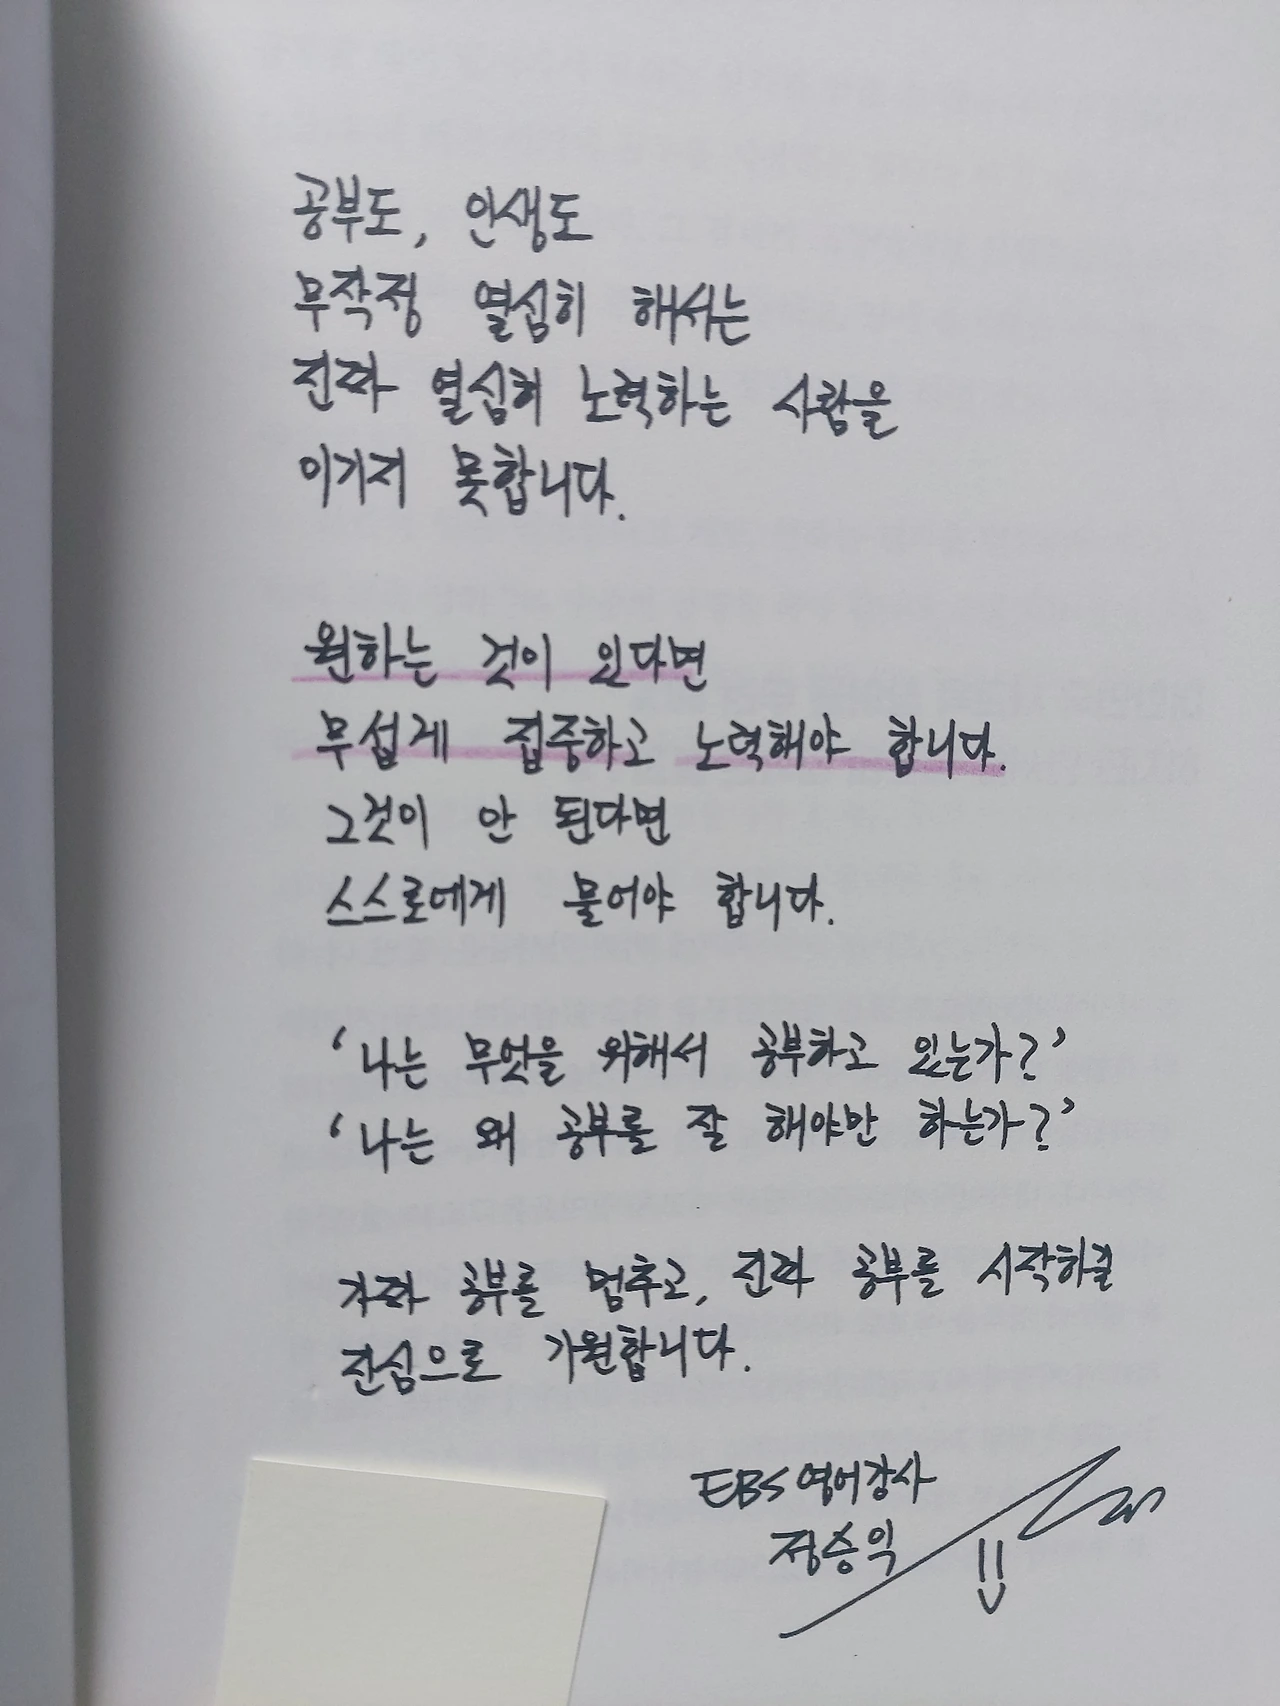 공부도, 인생도
무작정 열심히 해서는
진짜 열심히 노력하는 사람을
이기지 못합니다.
원하는 것이 있다면
무섭게 집중하고 노력해야 합니다.
그것이 안 된다면
스스로에게 물어야 합니다.
'나는 무엇을 위해서 공부하고 있는가?'
'나는 왜 공부를 잘 해야만 하는가?'
가짜 공부를 멈추고, 진짜 공부를 시작하길
진심으로 기원합니다.
EBS 영어강사
정승익